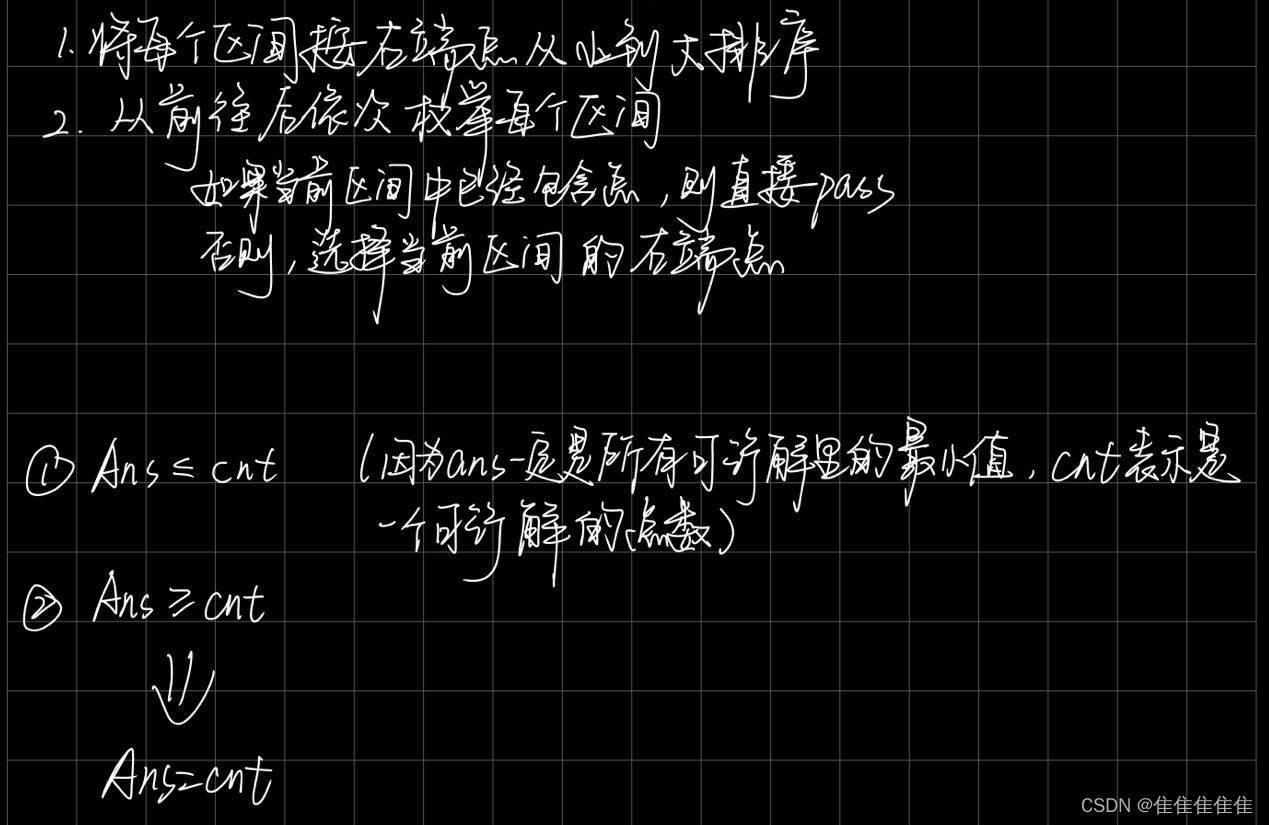 1. 将每个区间按右端点从小到大排序
2. 从前往后依次枚举每个区间
如果当前区间中已经包含点，则直接pass
否则，选择当前区间的右端点
① Ans ≤ cnt （因为ans一定是所有可行解里的最小值，cnt表示是
一个可行解的点数）
② Ans ≥ cnt
⇓
Ans=cnt
CSDN @隹隹隹隹隹